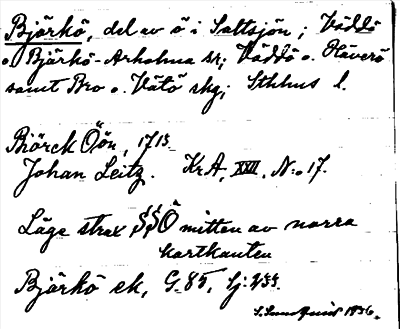 Björkö, del av ö i Saltsjön; Väddö
o. Björkö-Arholma sn; Väddö o. Häverö
samt Bro o. Vätö skg; Sthlms l.
Biörck Öön, 1715
Johan Leitz. KrA, XXII, N:o 17.
Läge strax SSÖ mitten av norra
kartkanten
Björkö ek, G. 85, Lj:
1936.